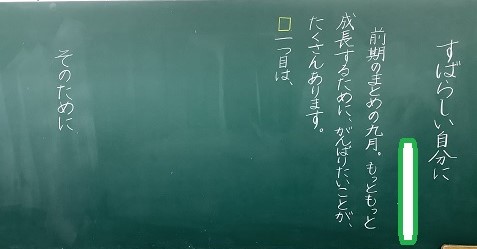 すばらしい自分に
前期のまとめの九月。もっともっと
成長するために、がんばりたいことが、
たくさんあります。
□一つ目は、
そのために